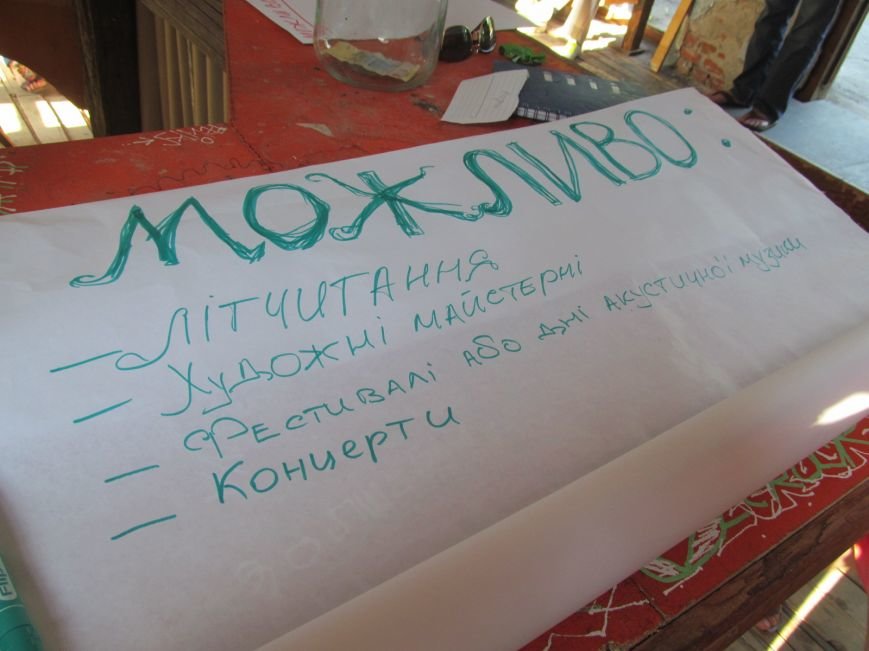 МОЖЛИВО:
— ЛІТЧИТАННЯ
— ХУДОЖНІ МАЙСТЕРНІ
— ФЕСТИВАЛІ АБО ДНІ АКУСТИЧНОЇ МУЗИКИ
— КОНЦЕРТИ
Flip